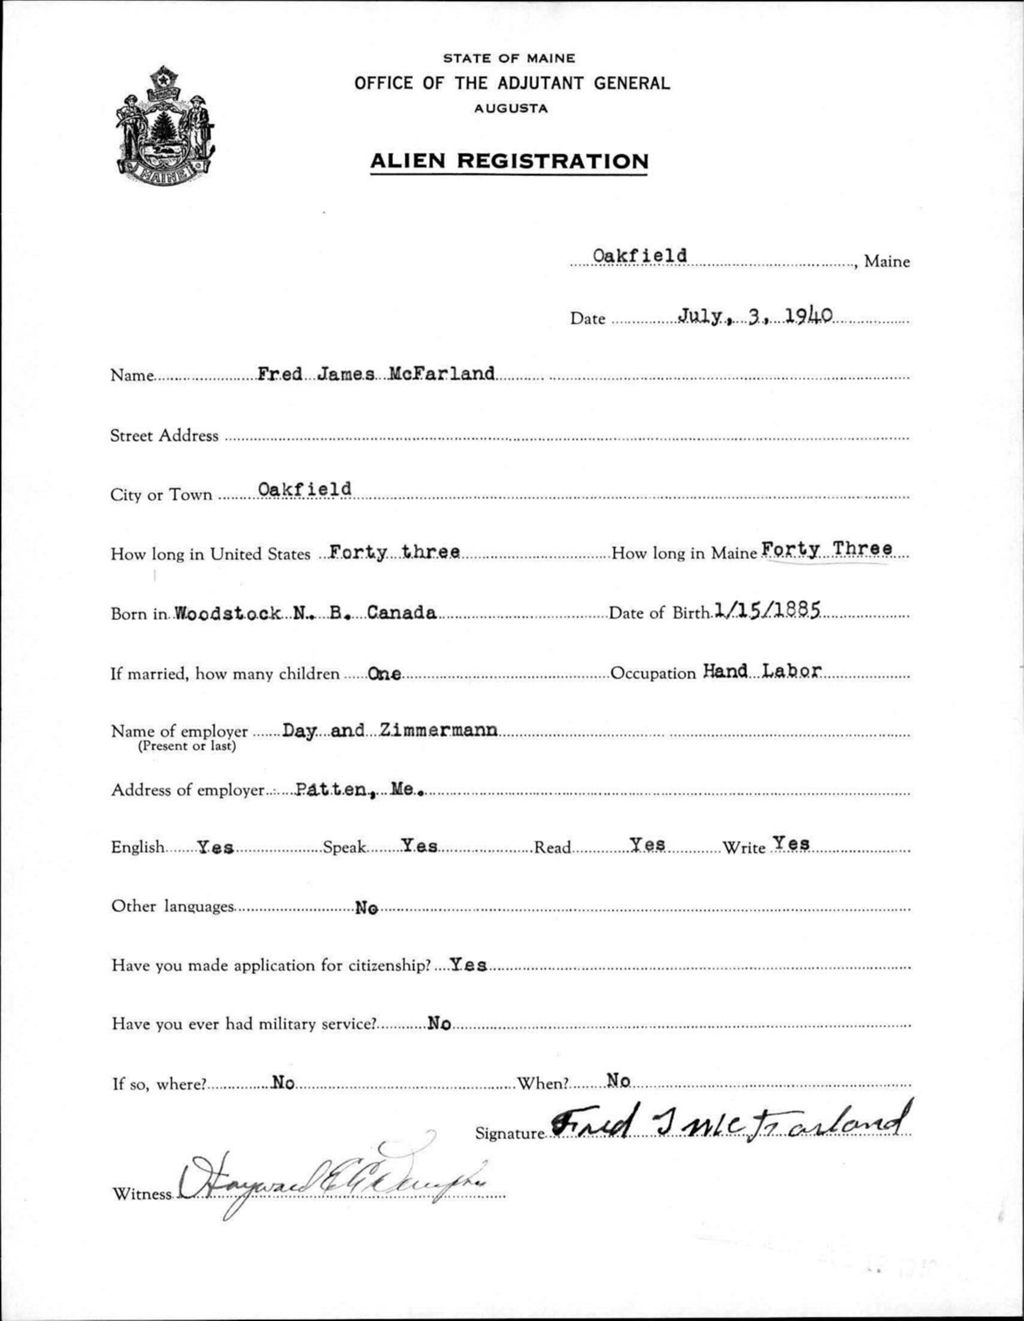 STATE OF MAINE
OFFICE OF THE ADJUTANT GENERAL
AUGUSTA
ALIEN REGISTRATION
MAINE
Oakfield, Maine
Date July, 3, 1940
Name Fred James McFarland
Street Address
City or Town Oakfield
How long in United States Forty three How long in Maine Forty Three
Born in Woodstock N. B. Canada Date of Birth 1/15/1885
If married, how many children One Occupation Hand Labor
Name of employer Day and Zimmermann
(Present or last)
Address of employer Patten, Me.
English Yes Speak Yes Read Yes Write Yes
Other languages No
Have you made application for citizenship? Yes
Have you ever had military service? No
If so, where? No When? No
Signature Fred J McFarland
Witness Hayward